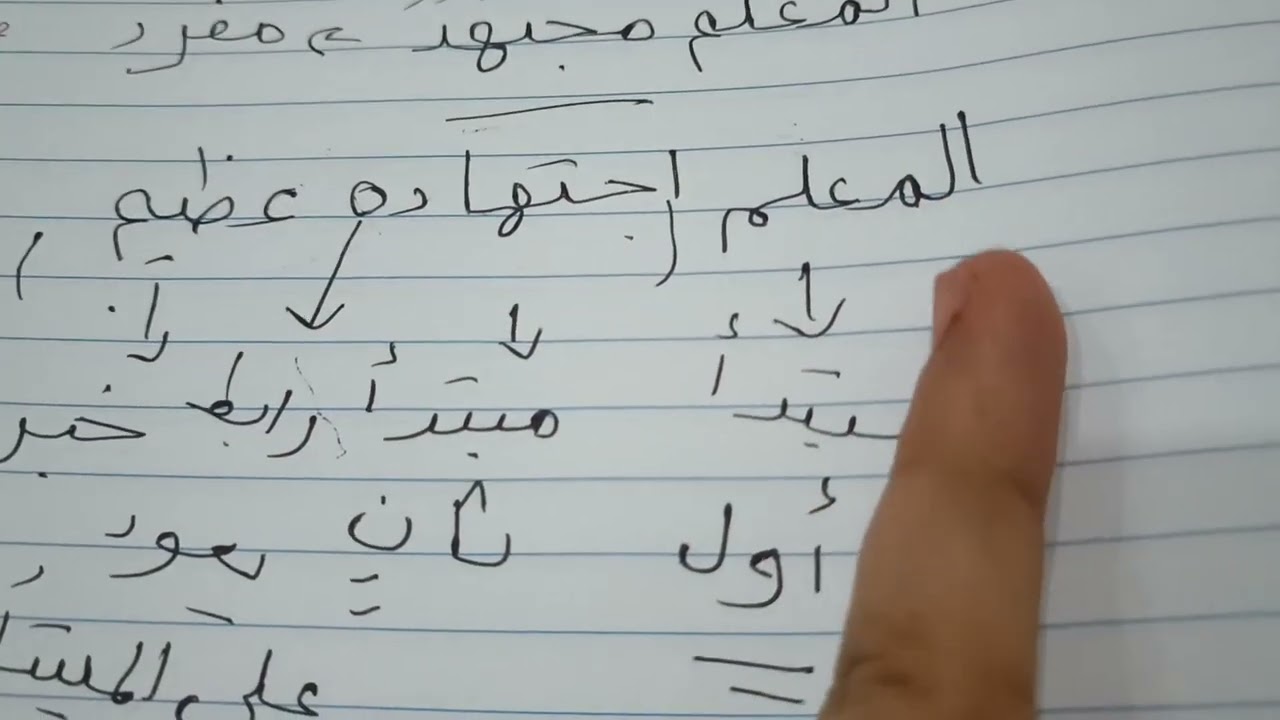 المعلم مجتهد ← مفرد
المعلم (اجتهاده عظيم)
مبتدأ مبتدأ رابط خبر
أول ثانٍ يعود
على المبتدأ